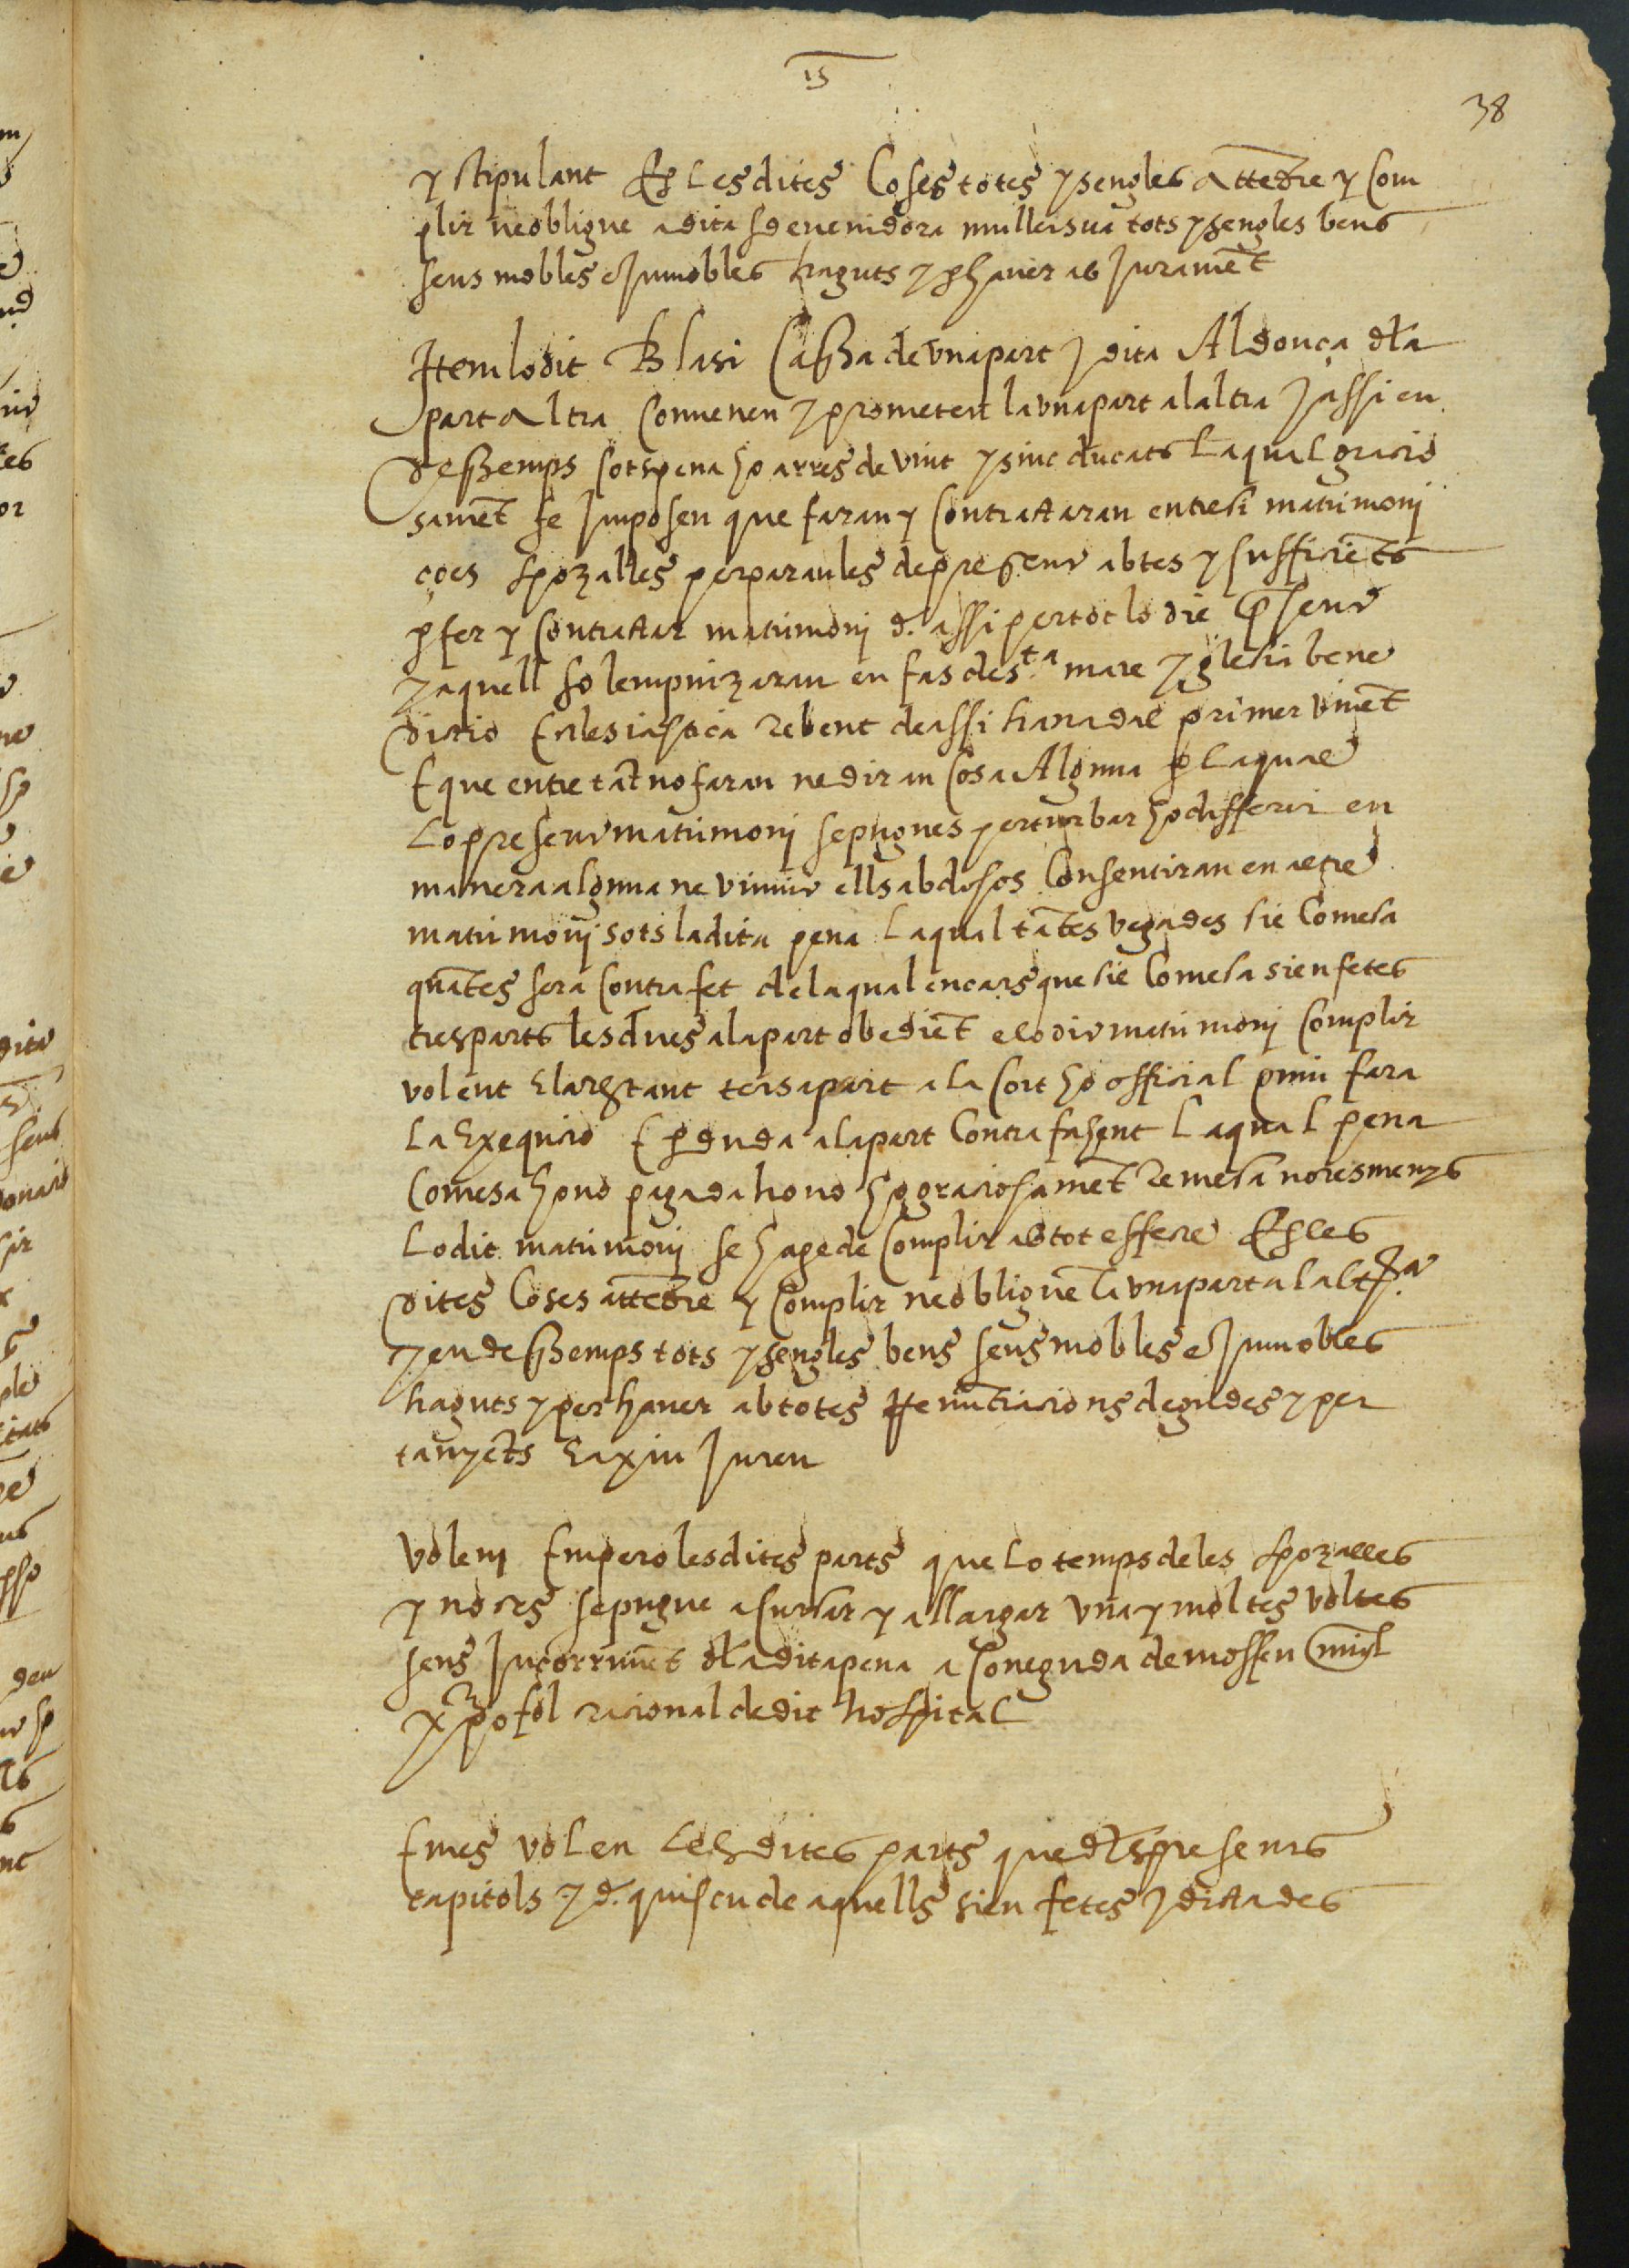 15
38
y stipulant E per les dites Coses totes y sengles attedre y Com
plir ne obligue a dita sdevenidora muller sua tots y sengles bens
seus mobles e Jmmobles haguts y per haver ab Juramet
Jtem lo dit Blasi Cassa de Vna part y dita Aldonça dla
part altra Convenen y prometen la vna part a laltra y assi en
dessemps sots pena ho arres de vint y sinc ducats La qual gracio
samet se Jmposen que faran y Contractaran entre si matrimonj
ço es spozalles per paraules de present abtes y sufficiets
per fer y Contractar matrimonj d. assi per tot lo die present
y aquell solempnizaran en fas de sta mare yglesia bene
dictio Eclesiastica rebent de assi ha nadal primer vinet
E que entretat no faran ne diran Cosa Alguna per La qual
Lo present matrimonj se pugues perturbar ho differir en
manera alguna ne vinint ells abdosos Consentiran en altre
matrimonj sots la dita pena La qual tates vegades sie Comesa
quates sera Contrafet de la qual en cars que sie Comesa sien fetes
tres parts les dues a la part obediet e lo dit matrimonj Complir
volent E la restant tersa part a la Cort ho official qui fara
La Exequcio E perduda a la part Contrafahent La qual pena
Comesa ho no pagada ho no ho graciosamet Remesa no res menys
Lo dit matrimonj se hage de Complir ab tot effecte E per les
dites Coses attedre y Complir ne obligue la vna part a laltra
y en dessemps tots y sengles bens seus mobles e Jmmobles
haguts y per haver ab totes Renuciacions degudes y per
tanyets E axiu Juren
Volem Empero les dites parts que Lo temps de les spozalles
y noces se pugue asurtar y allargar Vna y moltes voltes
sens Jncorrimet dla dita pena a Coneguda de mossen
Xpofol racional de dit hospital
E mes volen Les dites parts que dls presents
capitols y d. quiscu de aquells sien fetes y dictades